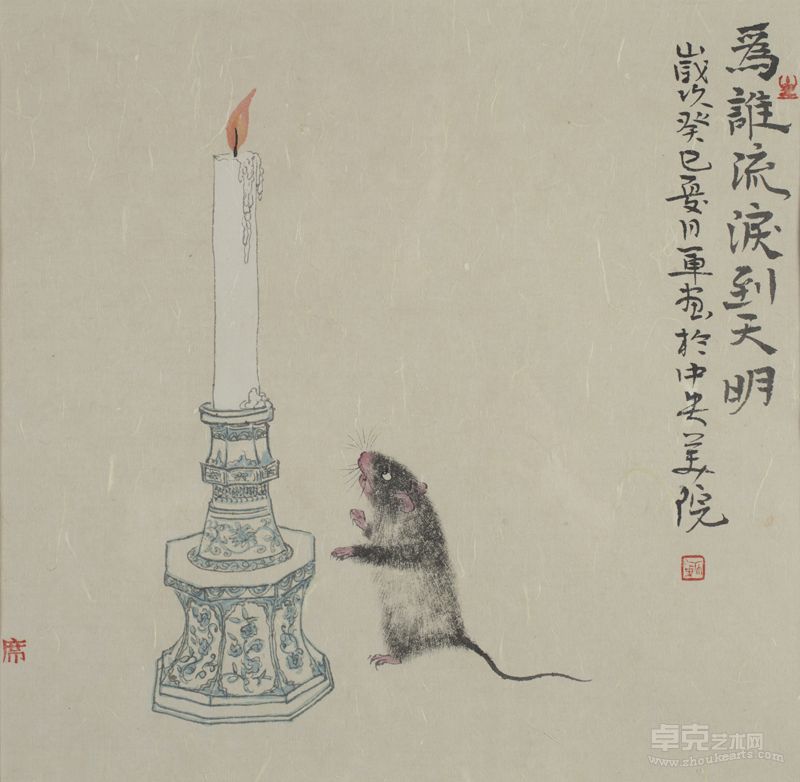 為誰流淚到天明
歲次癸巳夏川軍画於中央美院
席
卓克艺术网
www.zhoukearts.com